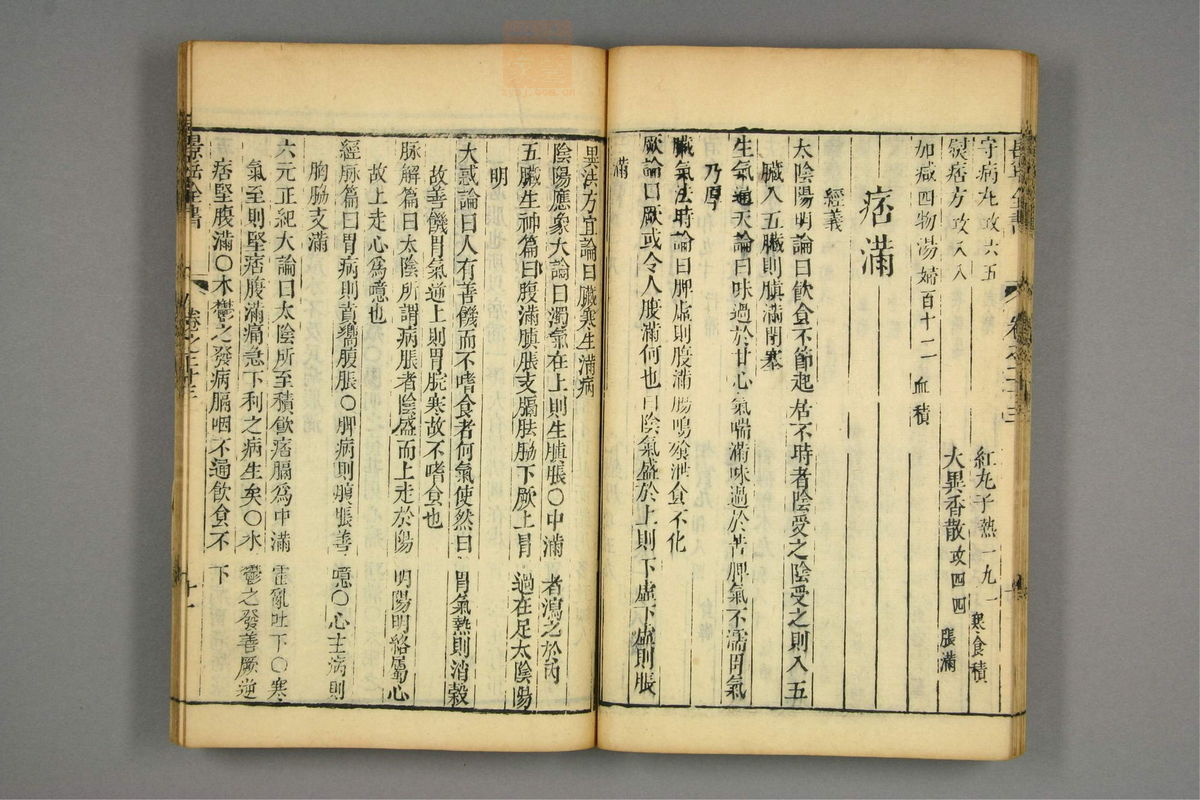 守病丸攻六五
紅丸子熱一九一
寒食積
熨痞方攻入入
大異香散攻四四
脹滿
加減四物湯婦百十二
血積
痞滿
經義
太陰陽明論曰飲食不節起居不時者陰受之陰受之則入五
臟入五臟則䐜滿閉塞
生氣通天論曰味過於甘心氣喘滿味過於苦脾氣不濡胃氣
乃厚
臟氣法時論曰脾虛則腹滿腸鳴飧泄食不化
厥論曰厥或令人腹滿何也曰陰氣盛於上則下虛下虛則脹
滿
異法方宜論曰臟寒生滿病
陰陽應象大論曰濁氣在上則生䐜脹〇中滿者瀉之於內
五臟生神篇曰腹滿䐜脹支膈胠脇下厥上冒過在足太陰陽
明
大惑論曰人有善饑而不嗜食者何氣使然曰胃氣熱則消穀
故善饑胃氣逆上則胃脘寒故不嗜食也
脉解篇曰太陰所謂病脹者陰盛而上走於陽明陽明絡屬心
故上走心爲噫也
經脉篇曰胃病則賁響腹脹〇脾病則腹脹善噫〇心主病則
胸脇支滿
六元正紀大論曰太陰所至積飲痞膈爲中滿霍亂吐下〇寒
氣至則堅痞腹滿痛急下利之病生矣〇水鬱之發善厥逆
痞堅腹滿〇木鬱之發病膈咽不通飲食不下
景岳全書
卷之二十三
十一